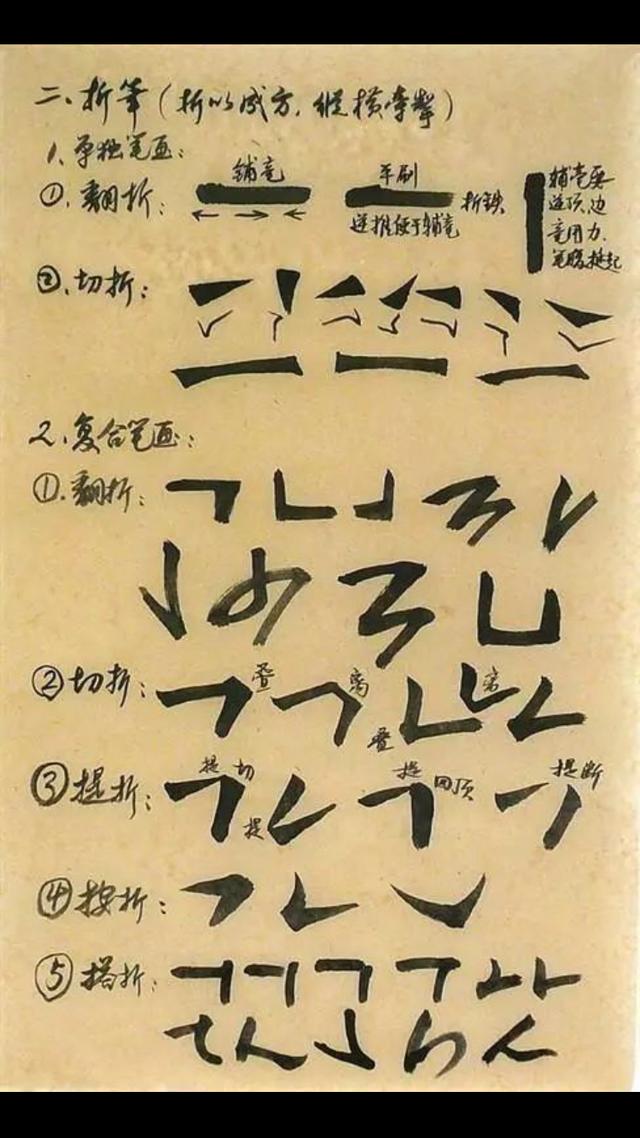 二、折笔（折以成方，纵横牵掣）
1、单独笔画：
①、翻折： 铺毫 平刷 折铁
逆推便于铺毫
铺毫要
逆顶，边
毫用力，
笔腹挺起
②、切折：
2、复合笔画：
①、翻折：
②切折： 叠 离 叠 离
③提折： 提 切 提 提 回顶 提断
④按折：
⑤搭折：